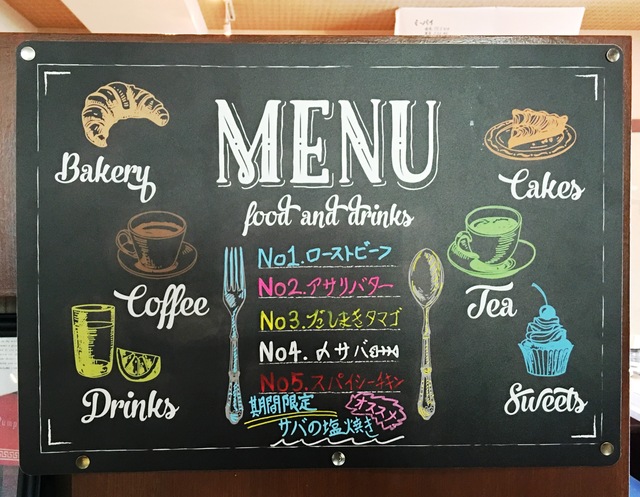 MENU
food and drinks
Bakery
Cakes
Coffee
Tea
Drinks
Sweets
No1.ローストビーフ
No2.アサリバター
No3.だしまきタマゴ
No4.〆サバ
No5.スパイシーチキン
期間限定
オススメ
サバの塩焼き